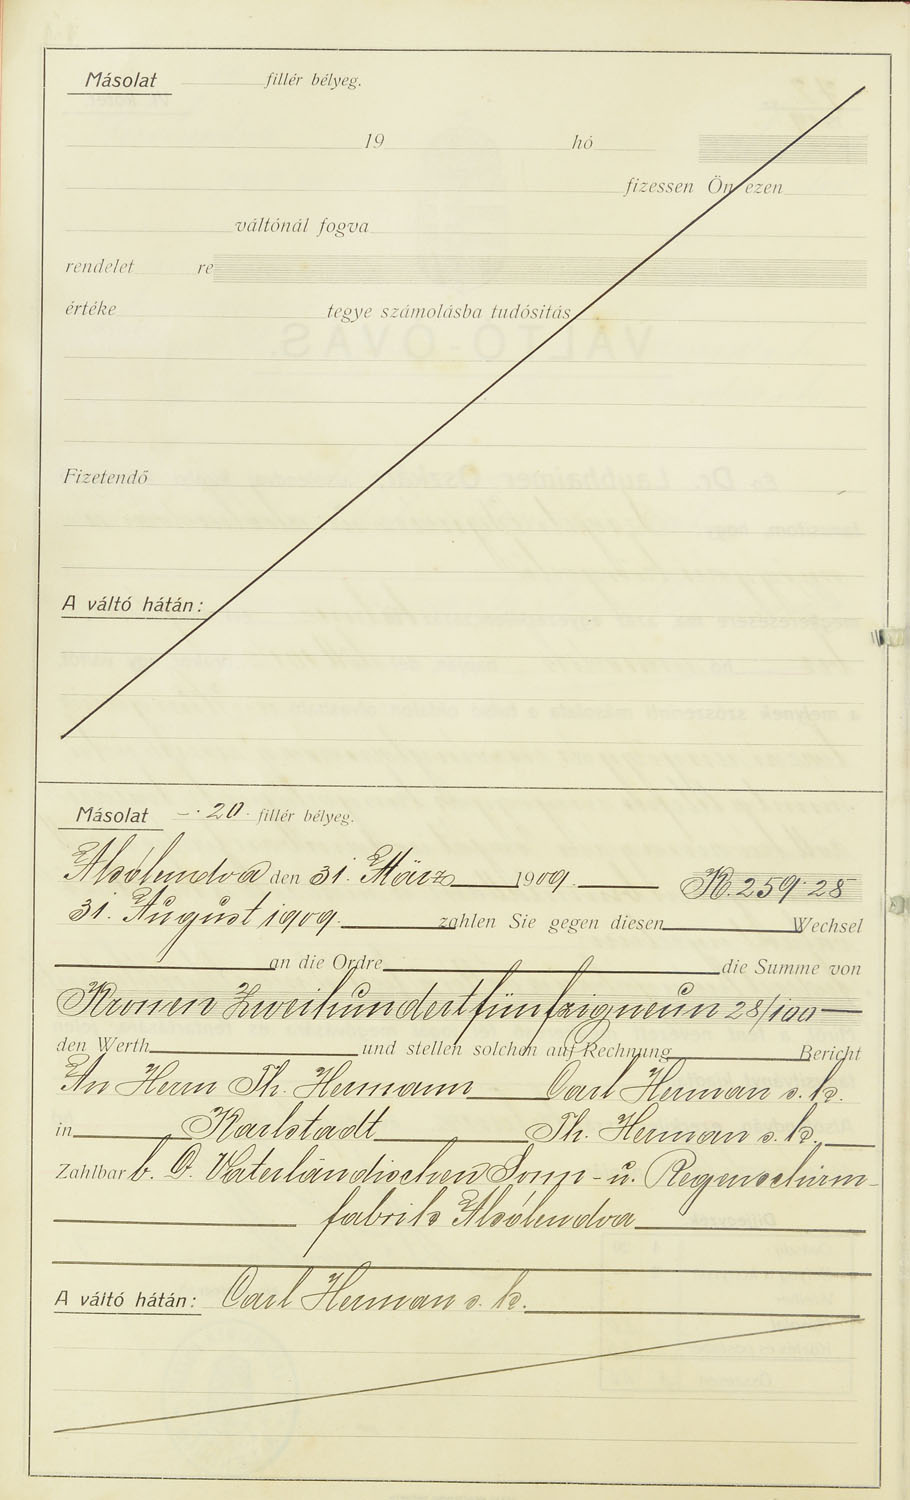 Másolat fillér bélyeg.
19 hó
fizessen Ön ezen
váltónál fogva
rendelet re
értéke tegye számolásba tudósítás
Fizetendő
A váltó hátán:
Másolat -·20· fillér bélyeg.
Alsólendva den 31. März 1909. K. 259·28
31. August 1909. zahlen Sie gegen diesen Wechsel
an die Ordre die Summe von
Kronen Zweihundertfünfzigneun 28/100
den Werth und stellen solchen auf Rechnung Bericht
An Herrn Th. Hermann Carl Herman s. k.
in Karlstadt Th. Herman s. k.
Zahlbar b. D. Vaterländischen Sonn- u. Regenschirm-
fabrik Alsólendva
A váltó hátán: Carl Herman s. k.